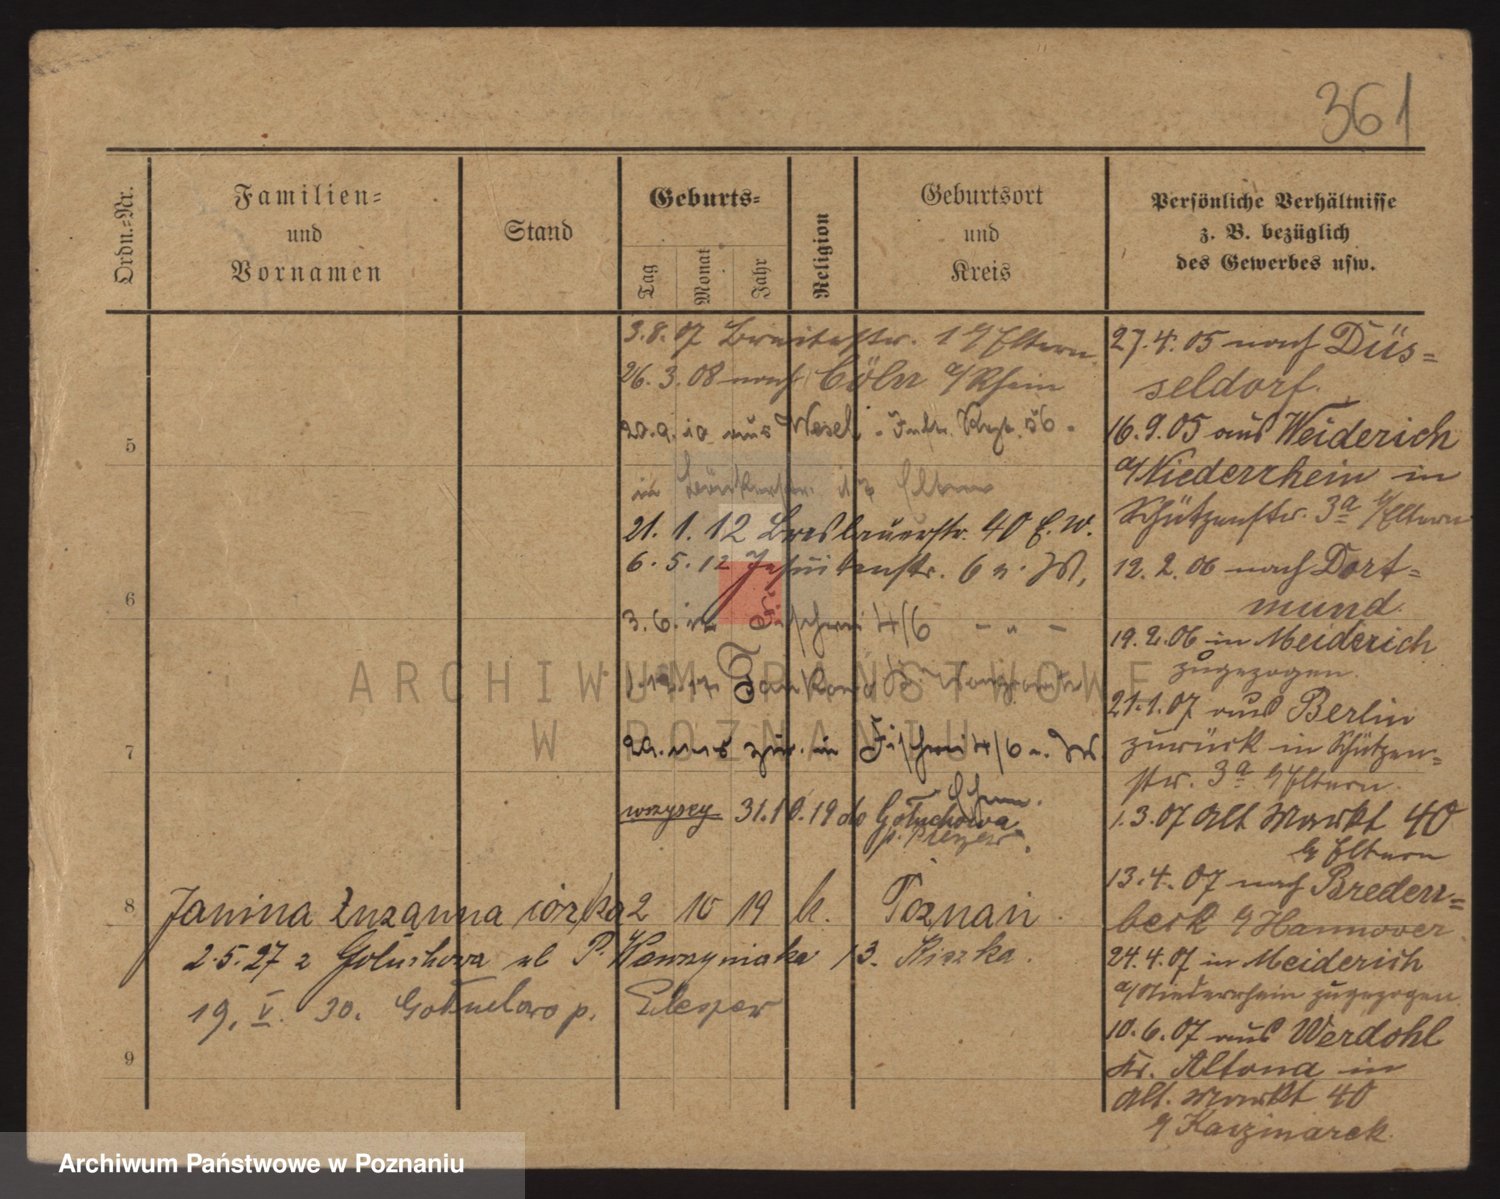 361
Ordn.-Nr.
Familien-
und
Vornamen
Stand
Geburts-
Tag
Monat
Jahr
Religion
Geburtsort
und
Kreis
Persönliche Verhältnisse
z. B. bezüglich
des Gewerbes usw.
3.8.07 Breitestr. 1 b/Eltern
26.3.08 nach Cöln a/Rhein
20.9.10 aus Wesel Inftr. Regt. 56
in
21.1.12 Breslauerstr. 40 E.W.
6.5.12 Jesuitenstr. 6
3.6. in Fischerei 4/6 - " -
29. aus zur. in Fischerei 4/6
wszyscy 31.10.19 do Gołuchowa
p. Pleszew
5
6
7
8
9
Janina Zuzanna córka 2 10 19 k. Poznań
2.5.27 z Gołuchowa ul P. Wawrzyniaka 13.
19. V. 30. Gołuchow p. Pleszew
27.4.05 nach Düs=
seldorf.
16.9.05 aus Meiderich
a/Niederrhein in
Schützenstr. 3a b/Eltern
12.2.06 nach Dort=
mund.
19.2.06 in Meiderich
zugezogen.
21.1.07 aus Berlin
zurück in Schützen=
str. 3a b/Eltern.
1.3.07 Alt Markt 40
b/Eltern
13.4.07 nach Breden=
beck b/Hannover
24.4.07 in Meiderich
a/Niederrhein zugezogen
10.6.07 aus Werdohl
Kr. Altona in
Alt. Markt 40
b/Kaczmarek
ARCHIWUM PAŃSTWOWE
W POZNANIU
Archiwum Państwowe w Poznaniu